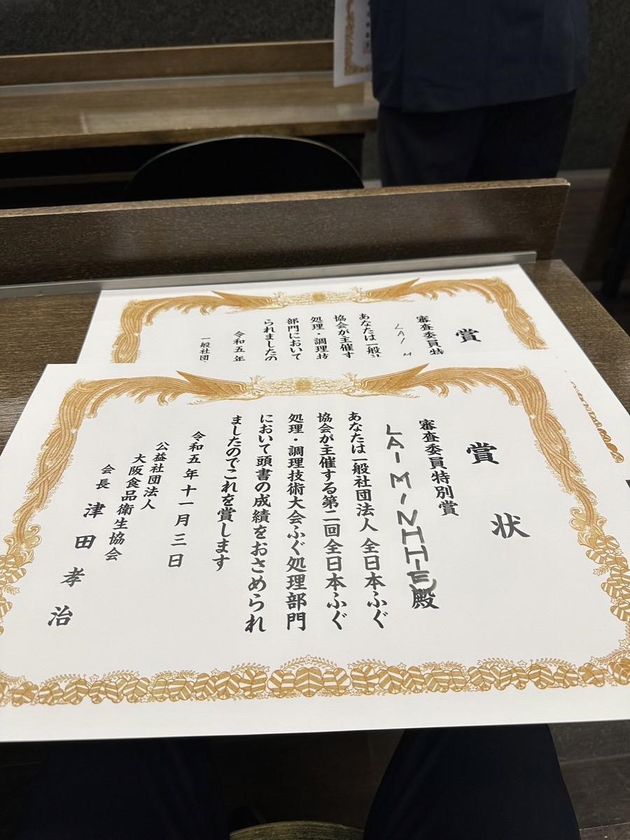 賞
審査委員特
LAI M
あなたは一般
協会が主催す
処理・調理技
部門において
られましたの
令和五年
一般社団
賞状
審査委員特別賞
LAI MINHHE殿
あなたは一般社団法人 全日本ふぐ
協会が主催する第二回全日本ふぐ
処理・調理技術大会ふぐ処理部門
において頭書の成績をおさめられ
ましたのでこれを賞します
令和五年十一月三日
公益社団法人
大阪食品衛生協会
会長 津田孝治